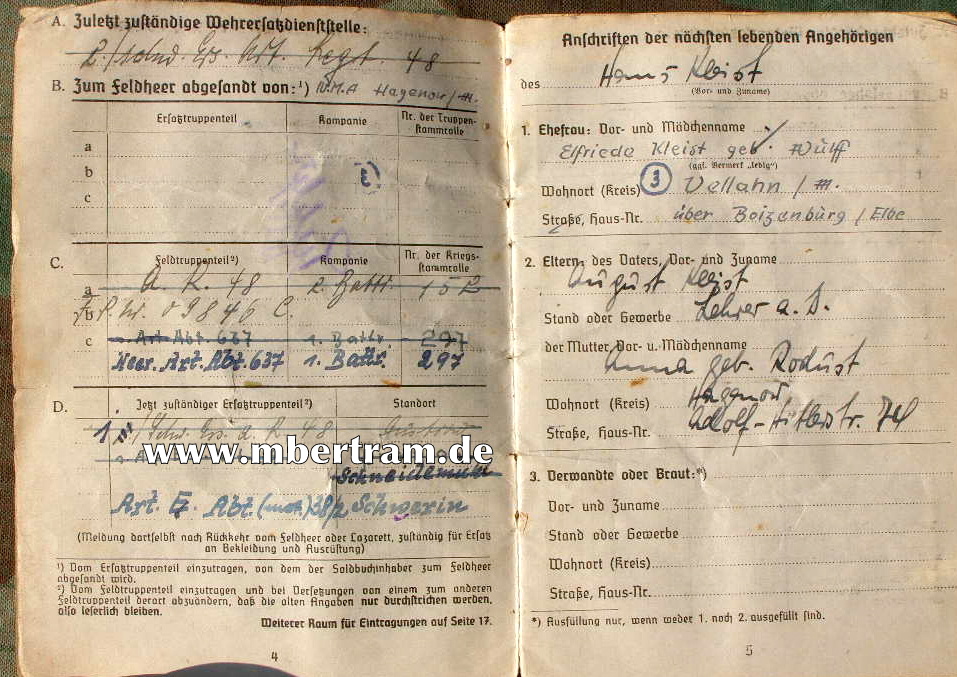 A. Zuletzt zuständige Wehrersatzdienststelle:
2./schw. Ers. Art. Regt. 48
B. Zum Feldheer abgesandt von:¹) W.M.A Hagenow/M.
Ersatztruppenteil Kompanie Nr. der Truppenstammrolle
a
b 3
c
C. Feldtruppenteil²) Kompanie Nr. der Kriegsstammrolle
a A. R. 48 2. Battr. 152
b F.P. Nr. 09846 C.
c Art. Abt. 637 1. Battr. 297
Heer. Art. Abt. 637 1. Battr. 297
D. Jetzt zuständiger Ersatztruppenteil²) Standort
/Schw. Ers. A. R. 48
www.mbertram.de
Schneidemühl
Art. E. Abt. (mot.) 38/2 Schwerin
(Meldung dortselbst nach Rückkehr vom Feldheer oder Lazarett, zuständig für Ersatz
an Bekleidung und Ausrüstung)
¹) Vom Ersatztruppenteil einzutragen, von dem der Soldbuchinhaber zum Feldheer
abgesandt wird.
²) Vom Feldtruppenteil einzutragen und bei Versetzungen von einem zum anderen
Feldtruppenteil derart abzuändern, daß die alten Angaben nur durchstrichen werden,
also leserlich bleiben.
Weiterer Raum für Eintragungen auf Seite 17.
4
Anschriften der nächsten lebenden Angehörigen
des Hans Kleist
(Vor- und Zuname)
1. Ehefrau: Vor- und Mädchenname
Elfriede Kleist geb. Wulff
(ggf. Vermerk „ledig")
Wohnort (Kreis) 3 Vellahn / M.
Straße, Haus-Nr. über Boizenburg / Elbe
2. Eltern: des Vaters, Vor- und Zuname
August Kleist
Stand oder Gewerbe Lehrer a. D.
der Mutter, Vor- u. Mädchenname
Anna geb. Rodust
Wohnort (Kreis) Hagenow
Straße, Haus-Nr. Adolf-Hitlerstr. 74
3. Verwandte oder Braut:*)
Vor- und Zuname
Stand oder Gewerbe
Wohnort (Kreis)
Straße, Haus-Nr.
*) Ausfüllung nur, wenn weder 1. noch 2. ausgefüllt sind.
5